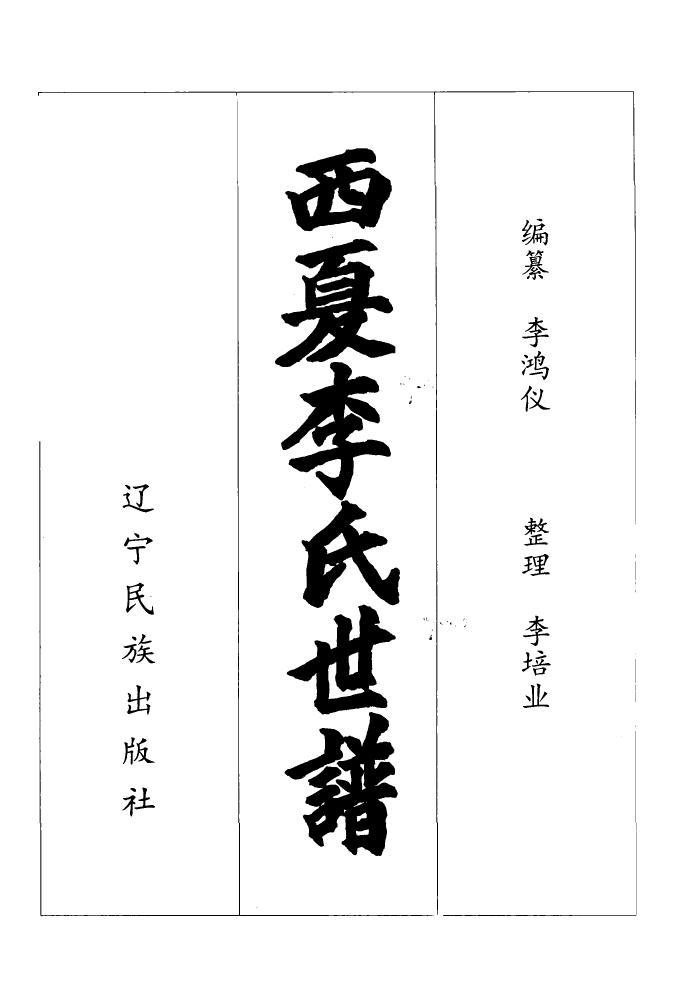 编纂 李鸿仪 整理 李培业
西夏李氏世譜
辽宁民族出版社